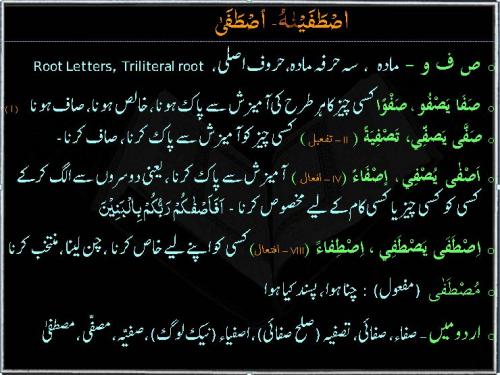 اصْطَفَيْنٰهُ۔ اَصْطَفَىٰ
ص ف و – مادہ ، سہ حرفہ مادہ، حروف اصلی، Root Letters, Triliteral root
صَفَا يَصْفُو ، صَفْوًا کسی چیز کا ہر طرح کی آمیزش سے پاک ہونا، خالص ہونا، صاف ہونا (I)
صَفَّى يَصَفِّي، تَصْفِيَةً (II – تفعیل) کسی چیز کو آمیزش سے پاک کرنا، صاف کرنا۔
اَصْفٰى يُصْفِي، إصْفَاءً (IV – افعال) آمیزش سے پاک کرنا، یعنی دوسروں سے الگ کر کے
کسی کو کسی چیز یا کسی کام کے لیے مخصوص کرنا – اَفَاَصْفٰىكُمْ رَبُّكُمْ بِالْبَنِيْنَ
اِصْطَفَى يَصْطَفِي ، اِصْطِفاءً (VIII – افتعال) کسی کو اپنے لیے خاص کرنا ، چن لینا، منتخب کرنا
مُصْطَفٰى (مفعول) : چنا ہوا، پسند کیا ہوا
اردو میں– صفاء، صفائی، تصفیہ (صلح صفائی)، اصفیاء (نیک لوگ)، صفیّہ، مصفّٰی، مصطفیٰ